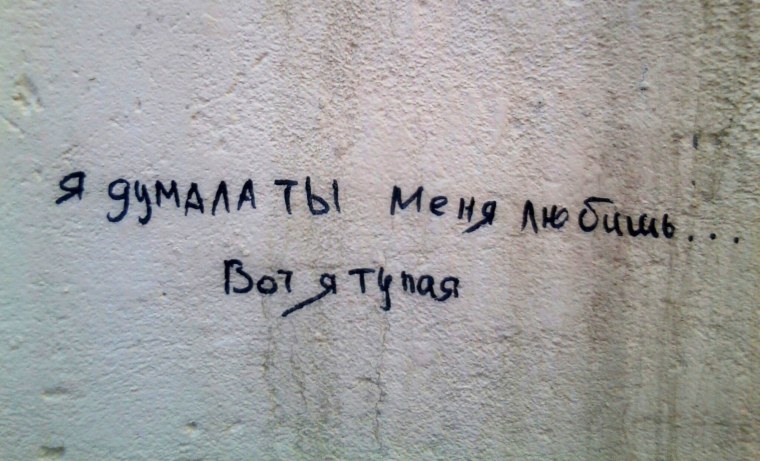 я думала ты меня любишь...
Вот я тупая